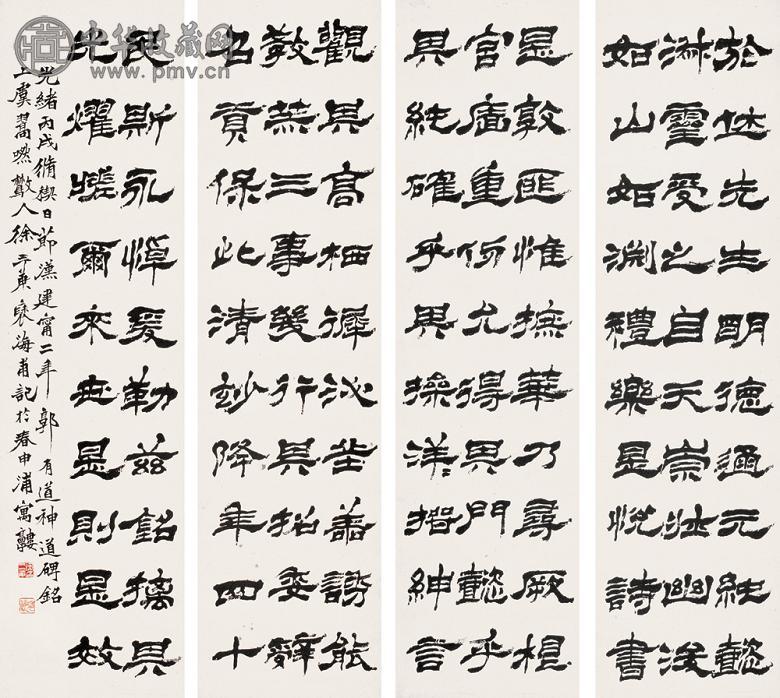 於休先生明德通元純懿
淑靈受之自天崇壯幽浚
如山如淵禮樂是悅詩書
是敦匪惟摭華乃尋厥根
宮廧重仞允得其門懿乎
其純確乎其操洋=搢紳言
觀其高栖遲泌丘善誘能
教赫三事幾行其招委辭
召貢保此清妙降年四十
民斯永悼爰勒茲銘摛其
光燿嗟爾來世是則是效
光緒丙戌脩禊日節漢建甯二年郭有道神道碑銘
上虞翯嘫散人徐三庚褎海甫記於春申浦寓廔
中华收藏网
www.pmv.cn